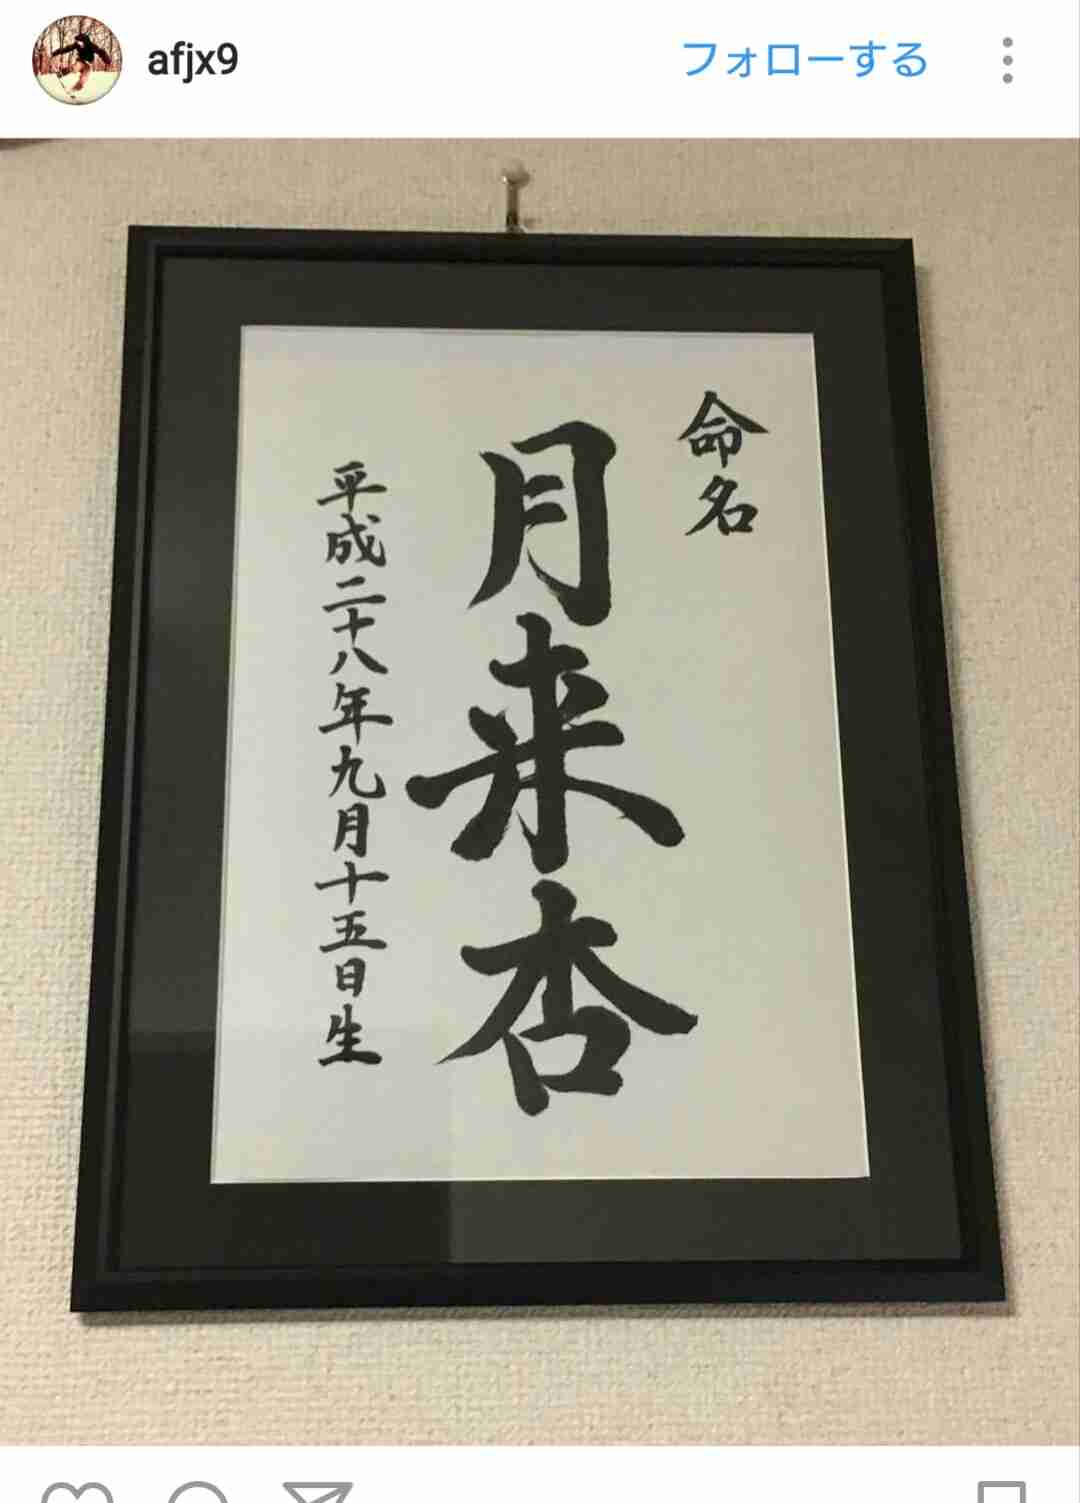 afjx9
フォローする
命名
月来杏
平成二十八年九月十五日生